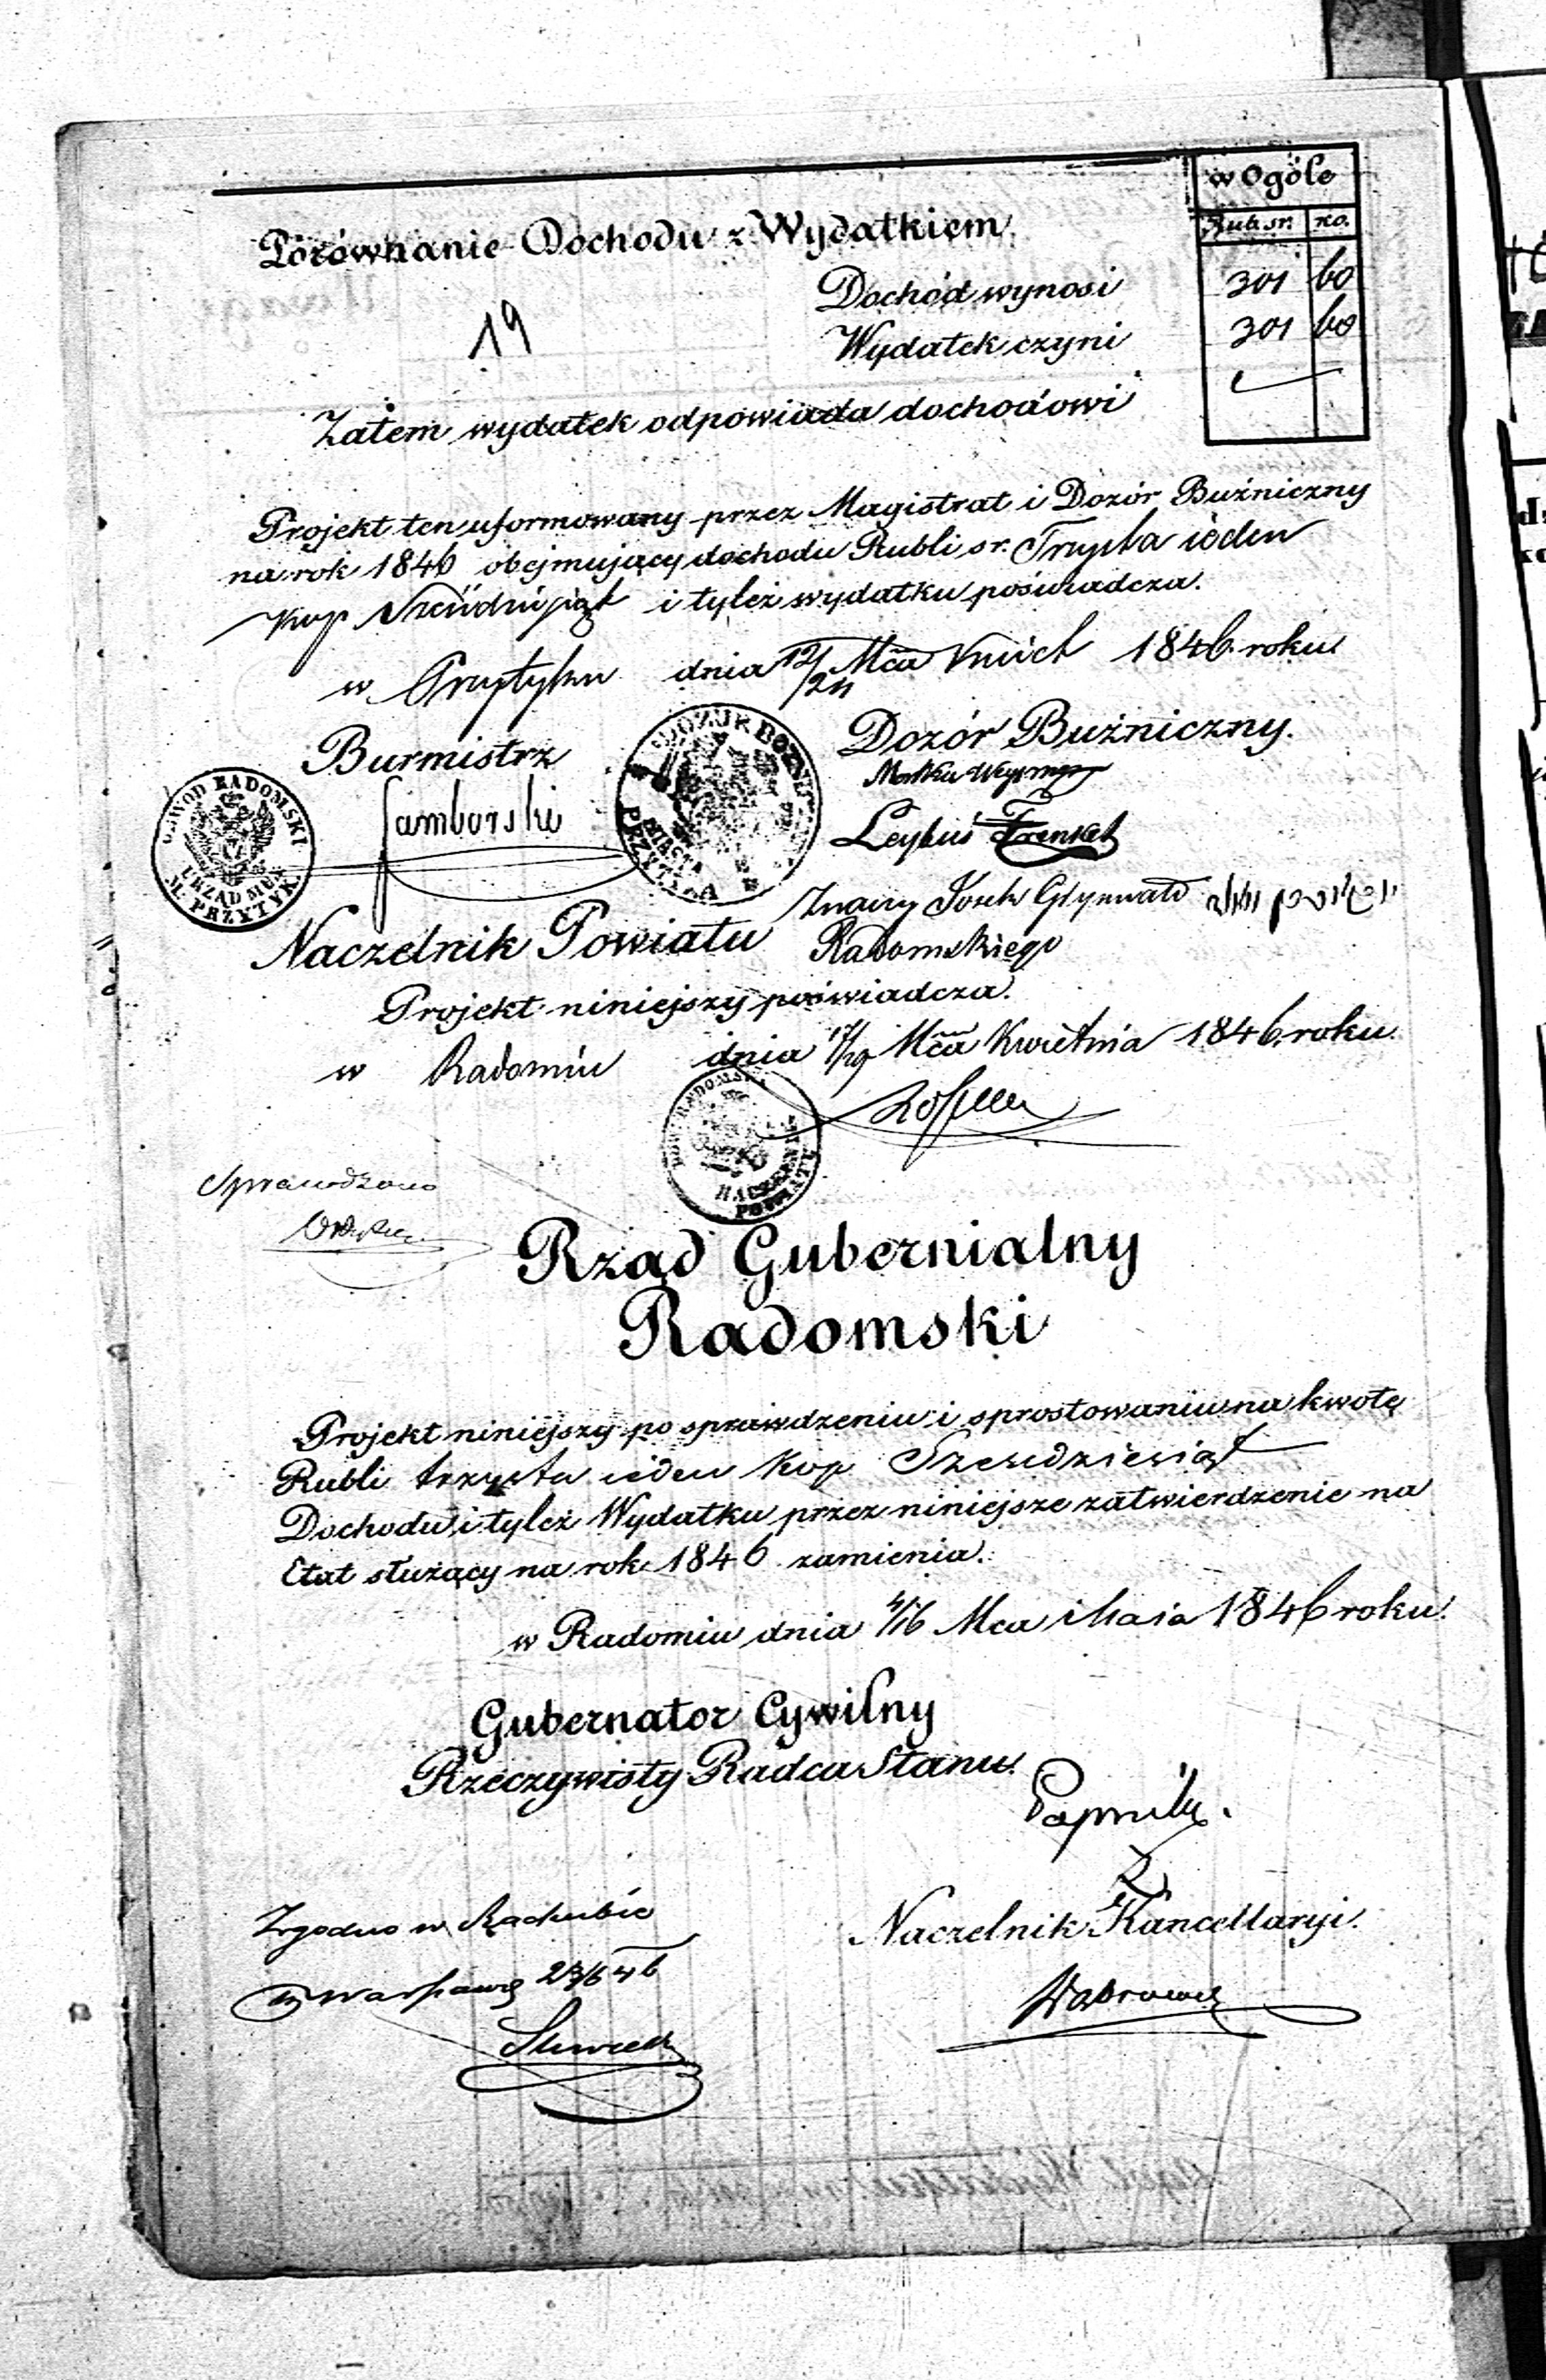 w Ogóle
Rub. sr. ko.
Porównanie Dochodu z Wydatkiem.
Dochód wynosi 301 60
19
Wydatek czyni 301 60
Zatem wydatek odpowiada dochodowi
Projekt ten uformowany przez Magistrat i Dozór Buźniczny
na rok 1846 obejmujący dochodu Rubli sr. Trzysta ieden
kop i tyleż wydatku poświadcza.
w Przytyku dnia 12/24 Mca 1846. roku.
Burmistrz
Dozór Buźniczny.
Samborski
Leybuś Frenkel
OBWÓD RADOMSKI
URZĄD MUN.
M. PRZYTYK.
DOZÓR BOŻN
MIASTA
PRZYTYKA
Josek Grynwald
Naczelnik Powiatu Radomskiego
Projekt niniejszy poświadcza.
w Radomiu dnia 17/29 Mca Kwietnia 1846. roku.
RADOMSK
NACZELNIK
POWIATU
Sprawdzono
Rząd Gubernialny
Radomski
Projekt niniejszy po sprawdzeniu i sprostowaniu na kwotę
Rubli trzysta ieden kop Sześćdziesiąt
Dochodu i tyleż Wydatku przez niniejsze zatwierdzenie na
Etat służący na rok 1846 zamienia.
w Radomiu dnia 4/16 Mca Maia 1846 roku.
Gubernator Cywilny
Rzeczywisty Radca Stanu.
Zgodno w Rachubie
Naczelnik Kancellaryi.
w Warszawie 23/6 46